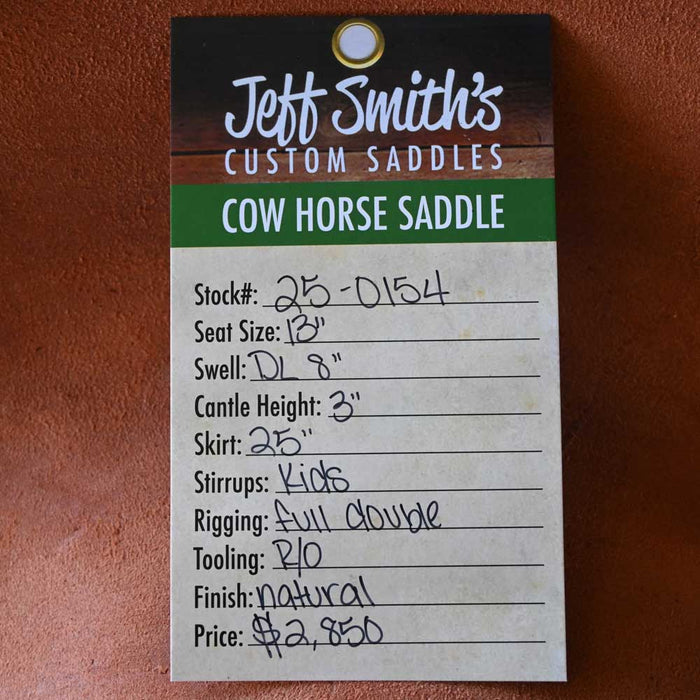 Jeff Smith's
CUSTOM SADDLES
COW HORSE SADDLE
Stock#: 25-0154
Seat Size: 13"
Swell: DL 8"
Cantle Height: 3"
Skirt: 25"
Stirrups: Kids
Rigging: full double
Tooling: R/O
Finish: natural
Price: $2,850